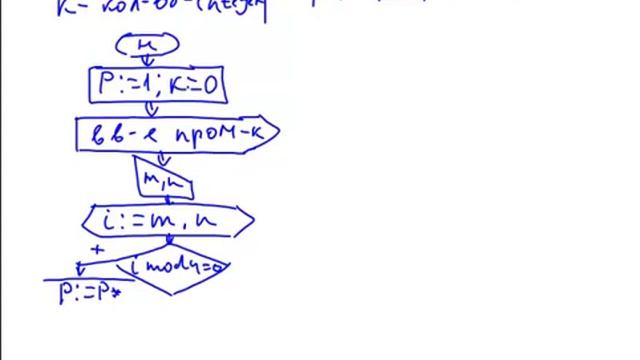 к- кол-во-integer
н
P:=1; к:=0
вв-е пром-к
m,n
i:=m, n
+
i mod 4=0
P:=P*